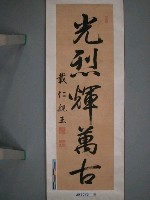 光烈輝萬古
載仁親王